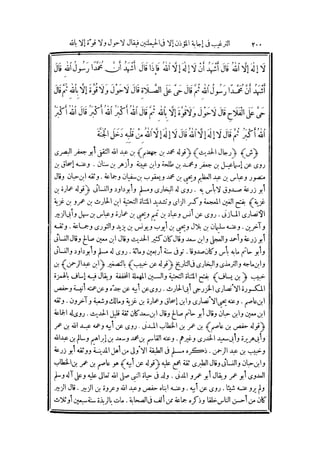 ٢٠٠ الترغيب فى إجابة المؤذن إلا فى الحيعلتين فيقال لاحول ولا قوة إلا بالله
لَا إِلَهَ إِلَّا اللهُ قَالَ أَشْهَدُ أَنْ لَا إِلَهَ إِلَّا اللهُ فَإِذَا قَالَ أَشْهَدُ أَنَّ مُحَمَّدًا رَسُولُ اللهِ قَالَ
أَشْهَدُ أَنَّ مُحَمَّدًا رَسُولُ اللهِ ثُمَّ قَالَ حَيَّ عَلَى الصَّلَاةِ قَالَ لَاحَوْلَ وَلَاقُوَّةَ إِلَّا بِاللهِ ثُمَّ قَالَ
حَيَّ عَلَى الْفَلَاحِ قَالَ لَاحَوْلَ وَلَاقُوَّةَ إِلَّا بِاللهِ ثُمَّ قَالَ اللهُ أَكْبَرُ اللهُ أَكْبَرُ قَالَ اللهُ أَكْبَرُ
اللهُ أَكْبَرُ ثُمَّ قَالَ لَا إِلَهَ إِلَّا اللهُ قَالَ لَا إِلَهَ إِلَّا اللهُ مِنْ قَلْبِهِ دَخَلَ الْجَنَّةَ
﴿ش﴾ ﴿رجال الحديث﴾ ﴿قوله محمد بن جهضم﴾ بن عبد الله الثقفى أبو جعفر البصرى
روى عن إسماعيل بن جعفر ومحمد بن طلحة وابن عيينة وأزهر بن سنان. وعنه إسحاق بن
منصور وعباس بن عبد العظيم ويحيى بن محمد ويعقوب بن سفيان وجماعة. وثقه ابن حبان وقال
أبو زرعة صدوق لابأس به. روى له البخارى ومسلم وأبوداود والنسائى ﴿قوله عمارة بن
غزية﴾ بفتح الغين المعجمة وكسر الزاى وتشديد المثناة التحتية ابن الحارث بن عمرو بن غزية
الأنصارى المازنى. روى عن أنس وعباد بن تميم ويحيى بن عمارة وعباس بن سهل وأبى الزبير
وآخرين. وعنه سليمان بن بلال ويحيى بن أيوب ويونس بن يزيد والثورى وجماعة. وثقه
أبو زرعة وأحمد والعجلى وابن سعد وقال كان كثير الحديث وقال ابن معين صالح وقال النسائى
وأبو حاتم مابه بأس وكان صدوقا. توفى سنة أربعين ومائة. روى له مسلم وأبوداود والنسائى
وابن ماجه والترمذى والبخارى فى التاريخ ﴿قوله عن خبيب﴾ بالتصغير ﴿ابن عبدالرحمن﴾ بن
خبيب ﴿بن يساف﴾ بفتح المثناة التحتية والسين المهملة المخففة ويقال فيه إساف بالهمزة
المكسورة الأنصارى الخزرجى أبى الحارث. روى عن أبيه عن جده وعن عمته أنيسة وحفص
ابن عاصم. وعنه يحيى الأنصارى وابن إسحاق وعمارة بن غزية ومالك وشعبة وآخرون. وثقه
ابن معين وابن حبان وقال أبو حاتم صالح وقال ابن سعد كان ثقة قليل الحديث. روى له الجماعة
﴿قوله حفص بن عاصم﴾ بن عمر بن الخطاب المدنى. روى عن أبيه وعمه عبد الله بن عمر
وأبى هريرة وأبى سعيد الخدرى وغيرهم. وعنه القاسم بن محمد وسعد بن إبراهيم وسالم بن عبدالله
وخبيب بن عبد الرحمن. ذكره مسلم فى الطبقة الأولى من أهل المدينة ووثقه أبو زرعة
وابن حبان والنسائى وقال الطبرى ثقة مجمع عليه ﴿قوله عن أبيه﴾ هو عاصم بن عمر بن الخطاب
العدوى أبو عمر ويقال أبو عمرو المدنى. ولد فى حياة النبى صلى الله تعالى عليه وعلى آله وسلم
ولم يرو عنه شيئا. روى عن أبيه. وعنه ابناه حفص وعبد الله وعروة بن الزبير. قال الزبير
كان من أحسن الناس خلقا وذكره جماعة ممن ألف فى الصحابة. مات بالربذة سنة سبعين أو ثلاث